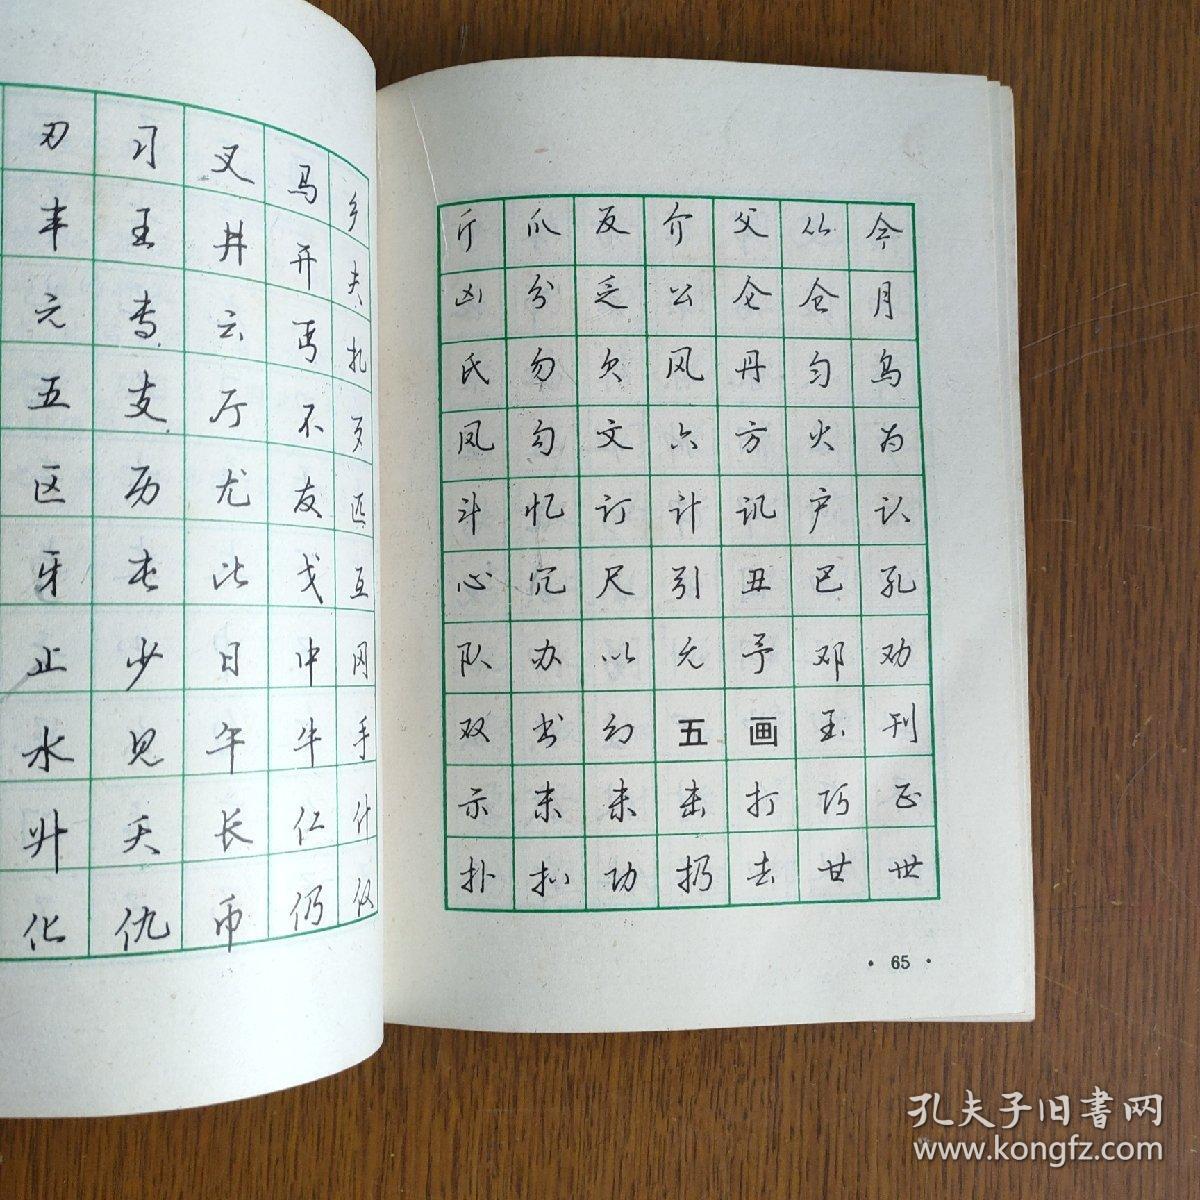 刃 习 叉 马 乡
丰 王 井 开 夫
元 专 云 丐 扎
五 支 厅 不 歹
区 历 尤 友 匹
牙 屯 比 戈 互
止 少 日 中 冈
水 见 午 牛 手
升 夭 长 仁 什
化 仇 币 仍 仅
斤 爪 反 介 父 从 今
凶 分 乏 公 仑 仓 月
氏 勿 欠 风 丹 匀 乌
凤 勾 文 六 方 火 为
斗 忆 订 计 讥 户 认
心 冗 尺 引 丑 巴 孔
队 办 以 允 予 邓 劝
双 书 幻 五 画 玉 刊
示 末 未 击 打 巧 正
扑 扒 功 扔 去 甘 世
· 65 ·
孔夫子旧書网
www.kongfz.com